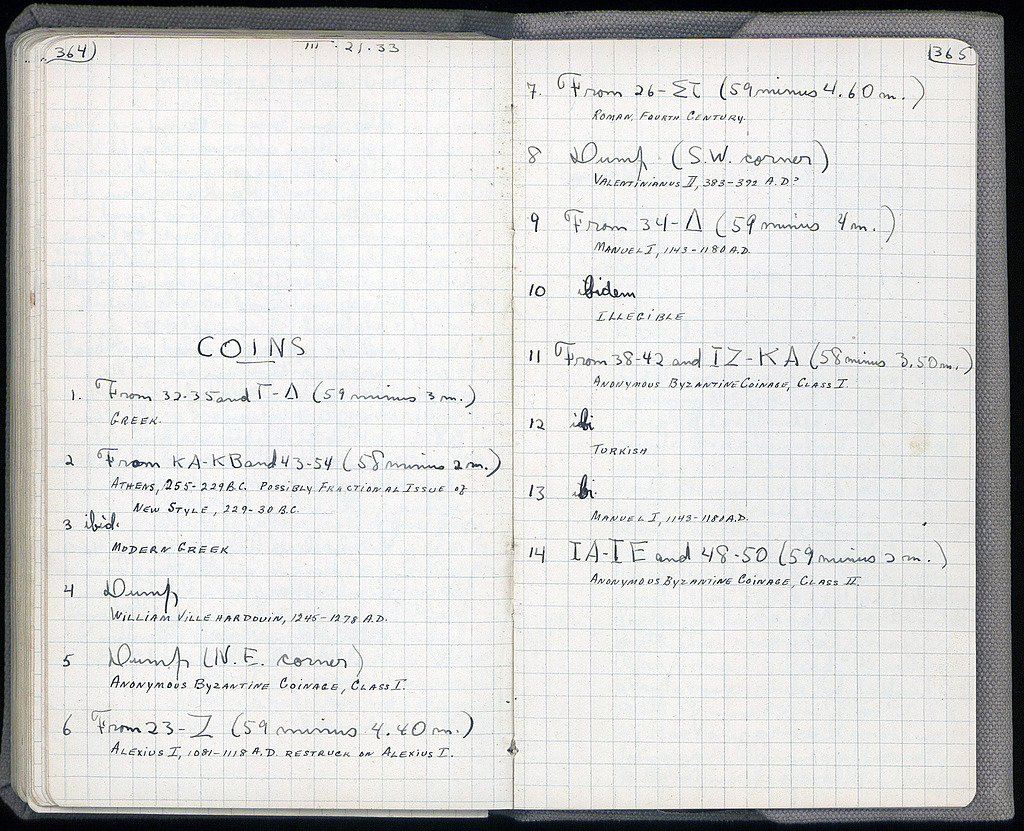 364
III · 21 · 33
COINS
1. From 32-35 and Γ-Δ (59 minus 3 m.)
GREEK.
2 From KA-KB and 43-54 (58 minus 2 m.)
ATHENS, 255-229 B.C. POSSIBLY FRACTIONAL ISSUE OF
NEW STYLE, 229-30 B.C.
3 ibid.
MODERN GREEK
4 Dump
WILLIAM VILLEHARDOUIN, 1245-1278 A.D.
5 Dump (N.E. corner)
ANONYMOUS BYZANTINE COINAGE, CLASS I.
6 From 23-Z (59 minus 4.40 m.)
ALEXIUS I, 1081-1118 A.D. RESTRUCK ON ALEXIUS I.
365
7. From 26-ΣΤ (59 minus 4.60 m.)
ROMAN, FOURTH CENTURY.
8 Dump (S.W. corner)
VALENTINIANUS II, 383-392 A.D.?
9 From 34-Δ (59 minus 4 m.)
MANUEL I, 1143-1180 A.D.
10 ibidem
ILLEGIBLE
11 From 38-42 and IZ-KA (58 minus 3.50 m.)
ANONYMOUS BYZANTINE COINAGE, CLASS I.
12 ibi
TURKISH
13 ibi.
MANUEL I, 1143-1180 A.D.
14 IA-IE and 48-50 (59 minus m.)
ANONYMOUS BYZANTINE COINAGE, CLASS III.